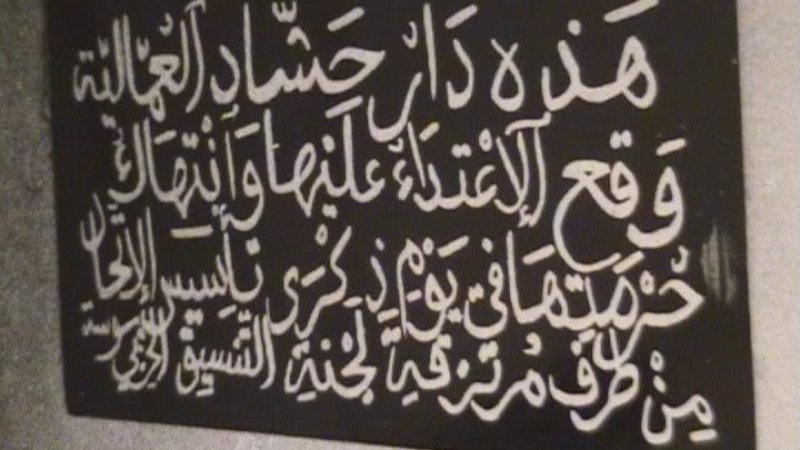 هَذِه دَارْ حَشَّاد العُمَّاليَّة
وَقع الإعْتدَاءُ عليْها وَانْتِهَاكُ
حُرْمَتِهَا فِي يَوْمِ ذِكْرَى تأسِيسِ الإتّحَادِ
مِنْ طَرَف مُرتزقةِ لَجْنةِ التّنسيق الحِزبي بسوسة